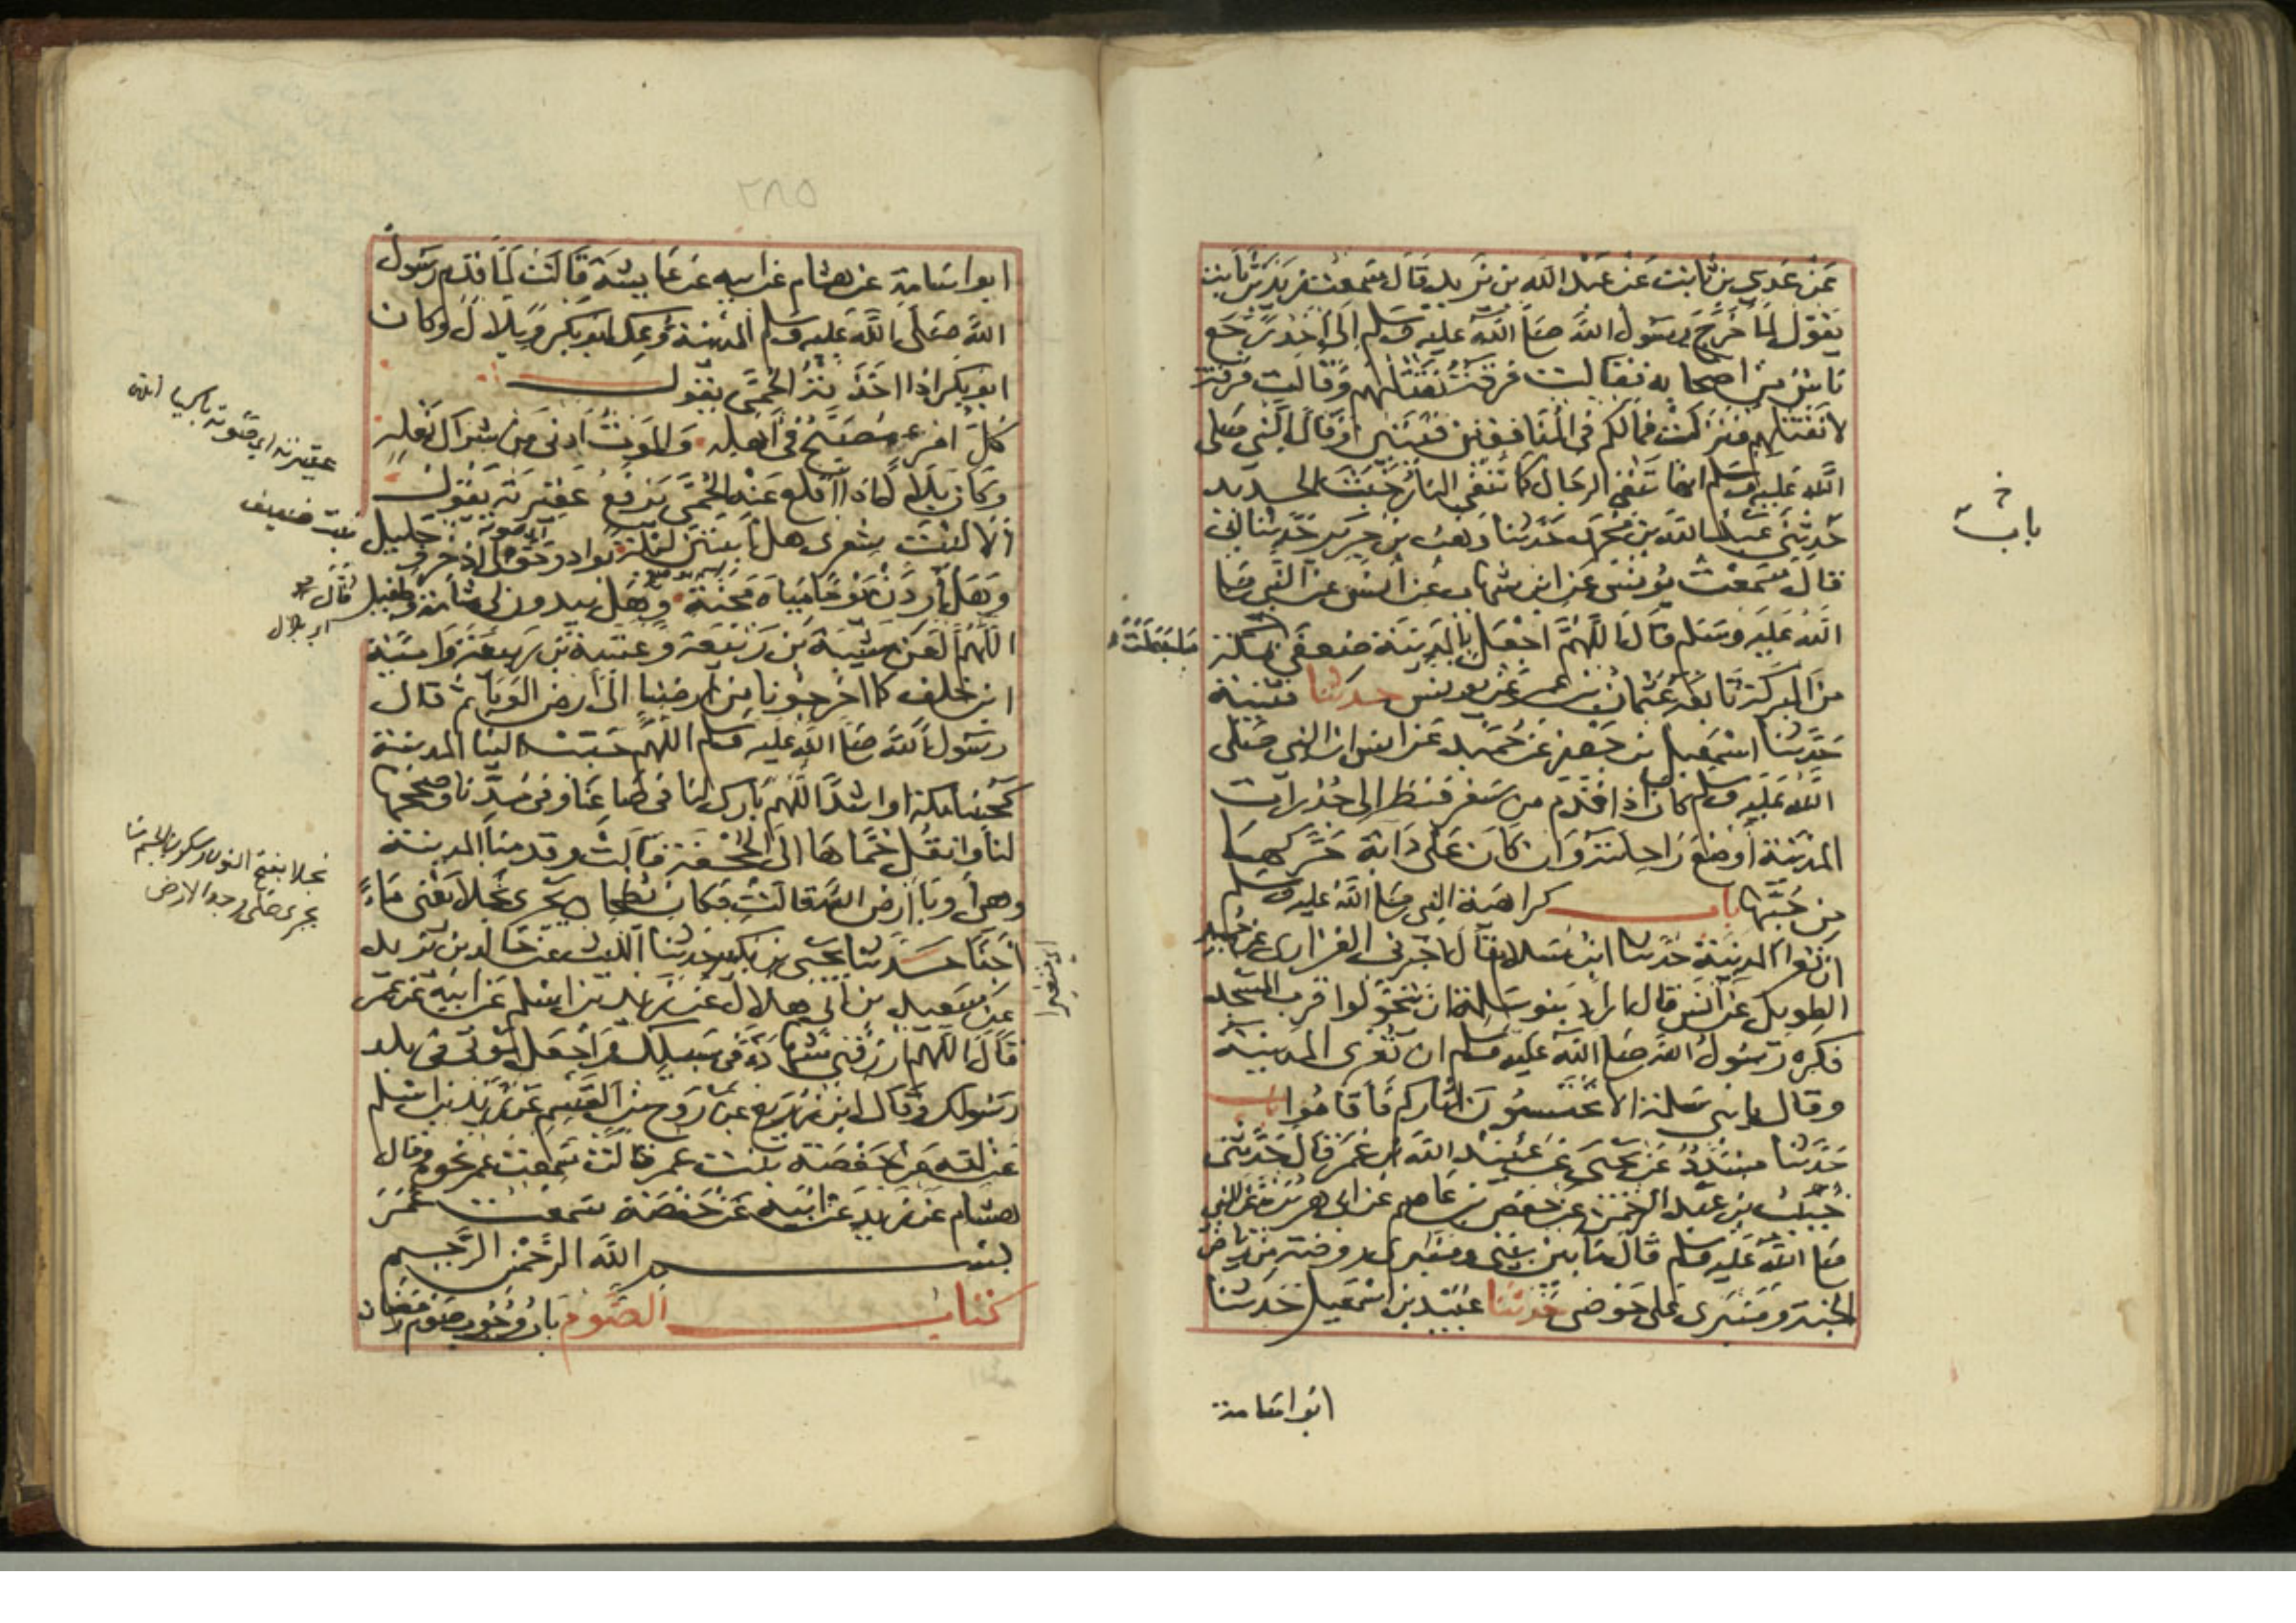 عَنْ عَدِي بن ثابت عَنْ عَبْد الله بن يزيد قال سمعت زيد بن ثابت
يقول لما خرج رسول الله صلى الله عليه وسلم الى احد رجع
ناس من اصحابه فقالت فرقة نقتلهم وقالت فرقة
لا نقتلهم فنزلت فما لكم في المنافقين فئتين وقال النبي صلى
الله عليه وسلم انها تنفي الرجال كما تنفي النار خبث الحديد
حدثني عبد الله بن محمد حدثنا وهب بن جرير حدثنا ابي
قال سمعت يونس عن ابن شهاب عن انس عن النبي صلى
الله عليه وسلم قال اللهم اجعل بالمدينة ضعفي بمكة
من البركة تابعه عثمان بن عمر عن يونس حدثنا قتيبة
حدثنا اسمعيل بن جعفر عن حميد عن انس ان النبي صلى
الله عليه وسلم كان اذا قدم من سفر فنظر الى جدرات
المدينة اوضع راحلته وان كان على دابة حركها
من حبها باب كراهية النبي صلى الله عليه وسلم
ان تعرا المدينة حدثنا ابن سلام قال اخبرني الفزاري عن حميد
الطويل عن انس قال اراد بنو سلمة ان يتحولوا قرب المسجد
فكره رسول الله صلى الله عليه وسلم ان تعرى المدينة
وقال يا بني سلمة الا تحتسبون اثاركم فاقاموا باب
حدثنا مسدد عن يحيى عن عبيد الله بن عمر قال حدثني
خبيب بن عبد الرحمن عن حفص بن عاصم عن ابي هريرة عن النبي
صلى الله عليه وسلم قال ما بين بيتي ومنبري روضة من رياض
الجنة ومنبري على حوضي حدثنا عبيد بن اسمعيل حدثنا
ابو اسامة
باب
ما جعلت
٢٨٥
ابو اسامة عن هشام عن ابيه عن عايشة قالت لما قدم رسول
الله صلى الله عليه وسلم المدينة وعك ابو بكر وبلال وكان
ابو بكر اذا اخذته الحمى يقول
كل امرء مصبح في اهله والموت ادنى من شراك نعله
وكان بلال اذا اقلع عنه الحمى يرفع عقيرته يقول
الا ليت شعري هل ابيتن ليلة بواد وحولي اذخر وجليل
وهل اردن يوما مياه مجنة وهل يبدون لي شامة وطفيل قال
اللهم العن شيبة بن ربيعة وعتبة بن ربيعة وامية
ابن خلف كما اخرجونا من ارضنا الى ارض الوباء ثم قال
رسول الله صلى الله عليه وسلم اللهم حبب الينا المدينة
كحبنا مكة او اشد اللهم بارك لنا في صاعنا وفي مدنا وصححها
لنا وانقل حماها الى الجحفة قالت وقدمنا المدينة
وهي اوبأ ارض الله قالت فكان بطحان يجري نجلا تعني ماء
اجنا حدثنا يحيى بن بكير حدثنا الليث عن خالد بن يزيد
عن سعيد بن ابي هلال عن زيد بن اسلم عن ابيه عن عمر
قال اللهم ارزقني شهادة في سبيلك واجعل موتي في بلد
رسولك وقال ابن زريع عن روح بن القسم عن زيد بن اسلم
عن امه عن حفصة بنت عمر قالت سمعت عمر نحوه وقال
هشام عن زيد عن ابيه عن حفصة سمعت عمر
بسم الله الرحمن الرحيم
كتاب الصوم باب وجوب صوم رمضان
عقيرته اي صوته
اي صوته
نبت ضعيف
اي بلال
نجلا بفتح النون وسكون الجيم
يجري على وجه الارض
اي متغيرا